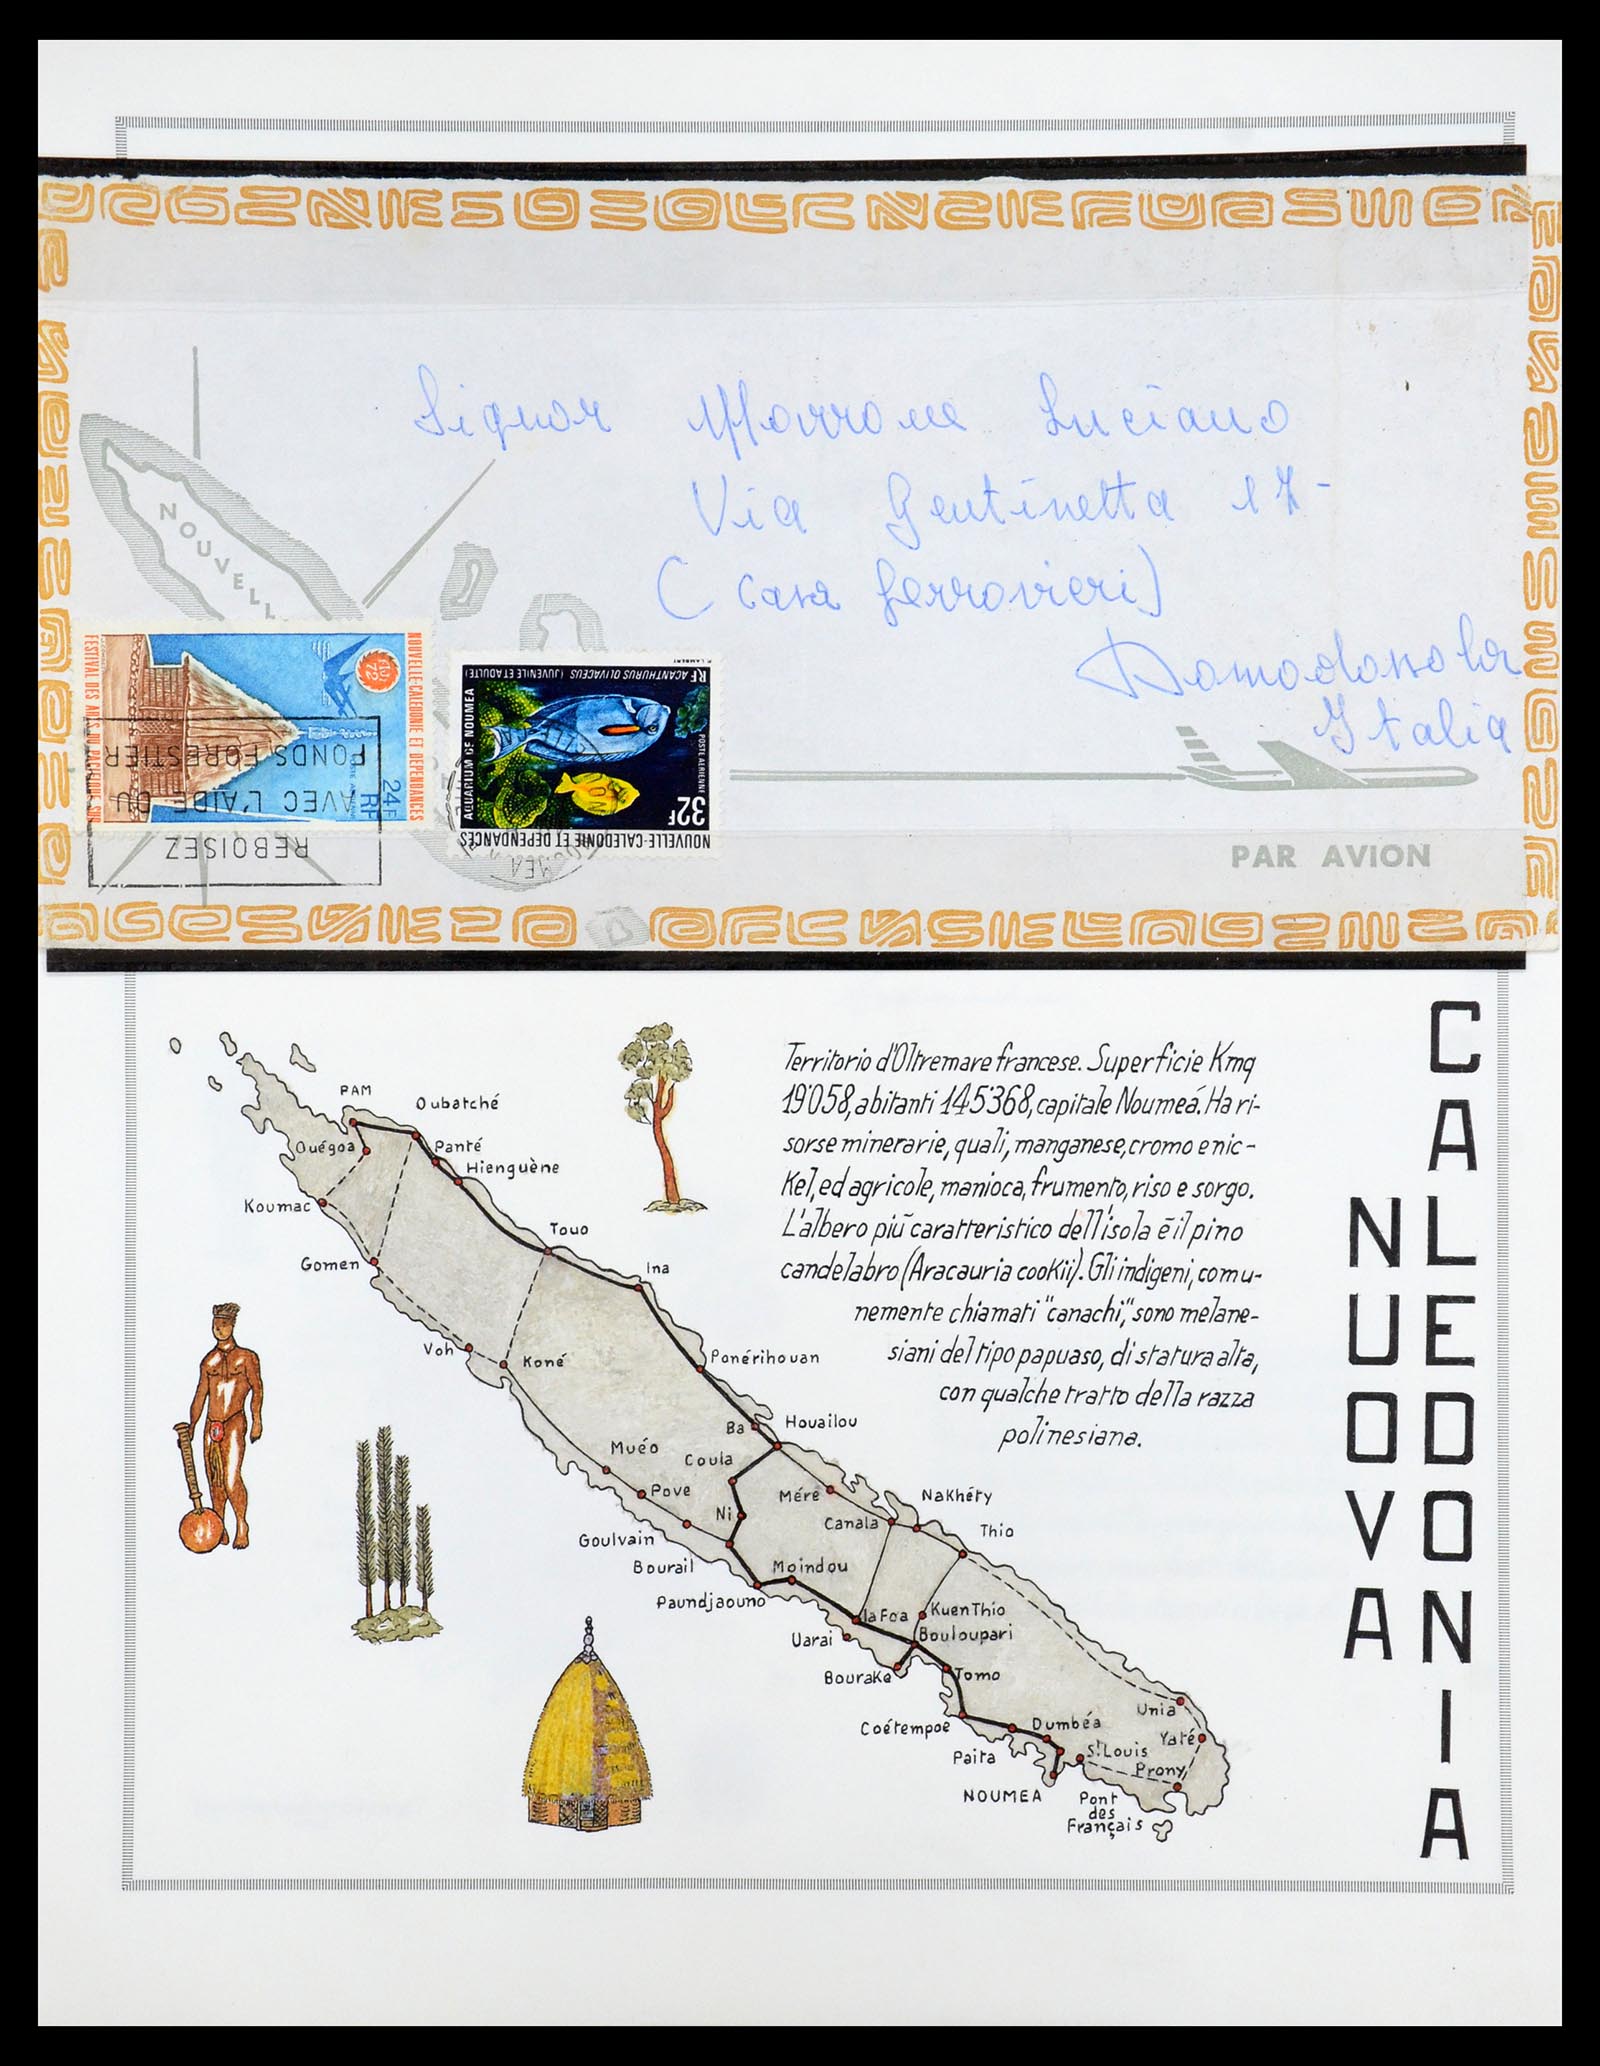 Signor Morrone Luciano
Via Gentinetta 17-
(Casa Ferrovieri)
Domodossola
Italia
NOUVELL
NOUVELLE-CALEDONIE ET DEPENDANCES
FESTIVAL DES ARTS DU PACIFIQUE SUD
24F
RF
POSTE AERIENNE
REBOISEZ
AVEC L'AIDE DU
FONDS FORESTIER
RF ACANTHURUS OLIVACEUS (JUVENILE ET ADULTE)
P. LAMBERT
AQUARIUM DE NOUMEA
POSTE AERIENNE
32F
NOUVELLE-CALEDONIE ET DEPENDANCES
PAR AVION
CALEDONIA
NUOVA
Territorio d'Oltremare francese. Superficie Kmq
19'058, abitanti 145'368, capitale Noumeá. Ha ri-
sorse minerarie, quali, manganese, cromo e nic-
Kel, ed agricole, manioca, frumento, riso e sorgo.
L'albero più caratteristico dell'isola è il pino
candelabro (Aracauria cookii). Gli indigeni, comu-
nemente chiamati "canachi", sono melane-
siani del tipo papuaso, di statura alta,
con qualche tratto della razza
polinesiana.
PAM
Oubatché
Ouégoa
Panté
Hienguène
Koumac
Touo
Gomen
Ina
Voh
Koné
Ponérihouan
Ba
Houailou
Muéo
Coula
Pove
Méré
Nakhéty
Ni
Canala
Thio
Goulvain
Bourail
Moindou
Paundjaouno
la Foa
Kuen Thio
Uarai
Bouloupari
Bourake
Tomo
Unia
Coétempoe
Dumbéa
Yaté
Paita
St. Louis
Prony
NOUMEA
Pont
des
Français